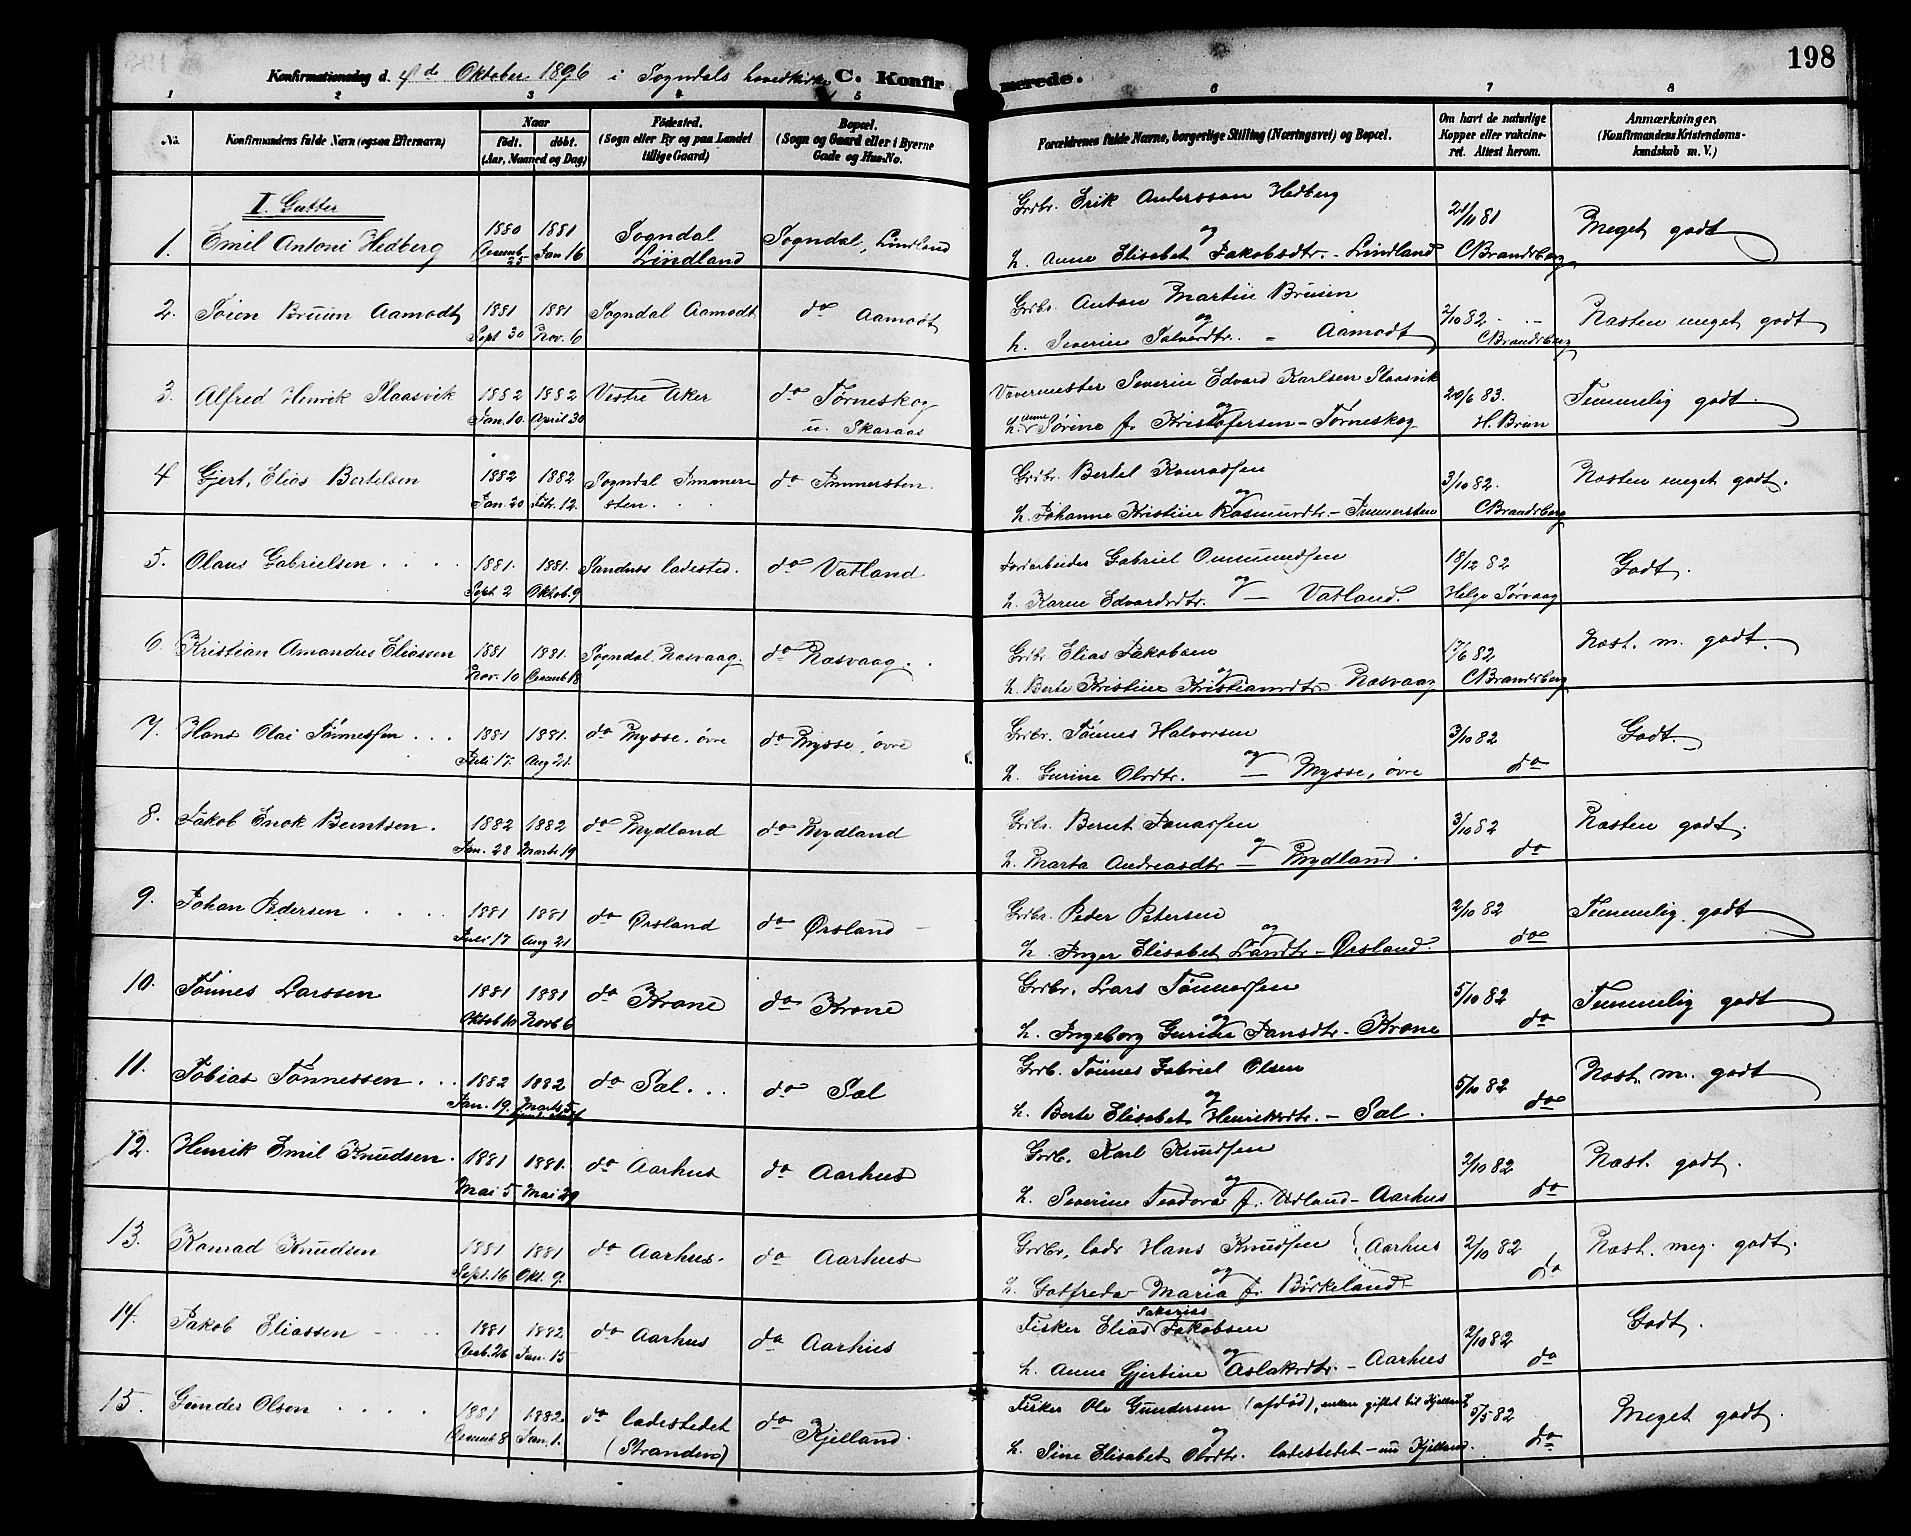 198
Konfirmationsdag d. 4de Oktober 1896 i Sogndals hovedkirke C. Konfirmerede.
1 2 3 4 5 6 7 8
No.
Konfirmandens fulde Navn (ogsaa Efternavn)
Naar
født. døbt.
(Aar, Maaned og Dag)
Fødested.
(Sogn eller By og paa Landet
tillige Gaard)
Bopæl.
(Sogn og Gaard eller i Byerne
Gade og Hus-No.
Forældrenes fulde Navne, borgerlige Stilling (Næringsvei) og Bopæl.
Om havt de naturlige
Kopper eller vakcine-
ret. Attest herom.
Anmærkninger,
(Konfirmandens Kristendoms-
kundskab m. V.)
I. Gutter
Grdbr. Erik Andersson Hedberg
1. Emil Antoni Hedberg 1880 1881 Sogndal Sogndal, Lindland og 21/11 81 Meget godt
Decemb. 25 Jan 16 Lindland h. Anne Elisabet Jakobsdtr. - Lindland CBrandsberg
2. Tøien Bruun Aamodt 1881 1881 Sogndal Aamodt do Aamodt Grdbr. Anton Martin Bruun 2/10 82 Næsten meget godt
Sept 30 Nov. 6 og
h. Severine Salvesdtr. - Aamodt CBrandsberg
3. Alfred Henrik Staasvik 1882 1882 Vestre Aker do Tørneskog Vævermester Severin Edvard Karlsen Staasvik 20/6 83. Temmelig godt.
Jan. 10. April 30 u. Skaraas og
h. Anne Sørine f. Kristofersen - Tørneskog H. Brun
4 Gjert Elias Bertelsen 1882 1882 Sogndal Immer- do Immersten. Grdbr. Bertel Konradsen 3/10 82. Næsten meget godt.
Jan. 20 Febr. 12. sten. og
h. Johanne Kristine Rasmusdtr. - Immersten CBrandsberg
5. Olaus Gabrielsen 1881. 1881. Sandnes ladested. do Vatland Jordarbeider Gabriel Ommundsen 18/12 82 Godt.
Sept. 2 Oktob. 9 og
h. Karen Edvardsdtr. — Vatland. Helge Tørvaag
6 Kristian Amandus Eliassen 1881 1881. Sogndal Næsvaag do Næsvaag. Grdbr. Elias Jakobsen 17/6 82 Næst. m. godt.
Nov. 10 Decemb. 18 og
h. Berte Kristine Kristiansdtr. Næsvaag CBrandsberg
7. Hans Olai Tønnessen 1881 1881. do Mysse, øvre do Mysse, øvre Grdbr. Tønnes Halvorsen 3/10 82 Godt.
Juli 17. Aug 21. og
h. Gurine Olsdtr. — Mysse, øvre do
8. Jakob Enok Berntsen. 1882 1882 do Mydland do Mydland Grdbr. Bernt Jonassen 3/10 82 Næsten godt.
Jan. 28 Marts 19 og
h. Marta Andreasdtr. — Mydland. do
9. Johan Pedersen 1881 1881 do Ørsland do Ørsland Grdbr. Peder Petersen 2/10 82 Temmelig godt
Juli 17 Aug 21 og
h. Inger Elisabet Larsdtr - Ørsland. do
10. Tønnes Larssen 1881 1881 do Krone do Krone Grdbr. Lars Tønnessen 5/10 82 Temmelig godt
Oktob. Novb 6 og
h. Ingeborg Gurine Jansdtr. - Krone do
11. Tobias Tønnessen 1882 1882 do Sæl do Sæl Grdb. Tønnes Gabriel Olsen 5/10 82 Næst. m. godt
Jan. 19. Marts 5 og
h. Berte Elisabet Henriksdtr. - Sæl. do
12. Henrik Emil Knudsen. 1881 1881. do Aarhus do Aarhus Grdb. Karl Knudsen 2/10 82 Næst. godt.
Mai 5 Mai 29 og
h. Severine Teodora f. Urland - Aarhus do
13. Konrad Knudsen 1881 1881 do Aarhus. do Aarhus Grdbr, lods Hans Knudsen Aarhus 2/10 82 Næst. meg. godt.
Sept. 16 Okt. 9. og
h. Gotfreda Maria f. Birkeland do
14. Jakob Eliassen 1881 1882 do Aarhus do Aarhus Fisker Elias Sakarias Jakobsen 2/10 82 Godt.
Decb. 26 Jan. 15 og
h. Anne Gjertine Aslaksdtr. - Aarhus do
15. Gunder Olsen 1881 1882. do ladestedet do Fisker Ole Gundersen (afdød), enken giftet til Kjelland 5/5 82 Meget godt.
Decemb 8 Jan. 1. (Stranden) Kjelland. og
h. Sine Elisabet Olsdtr. ladestedet - nu Kjelland. do